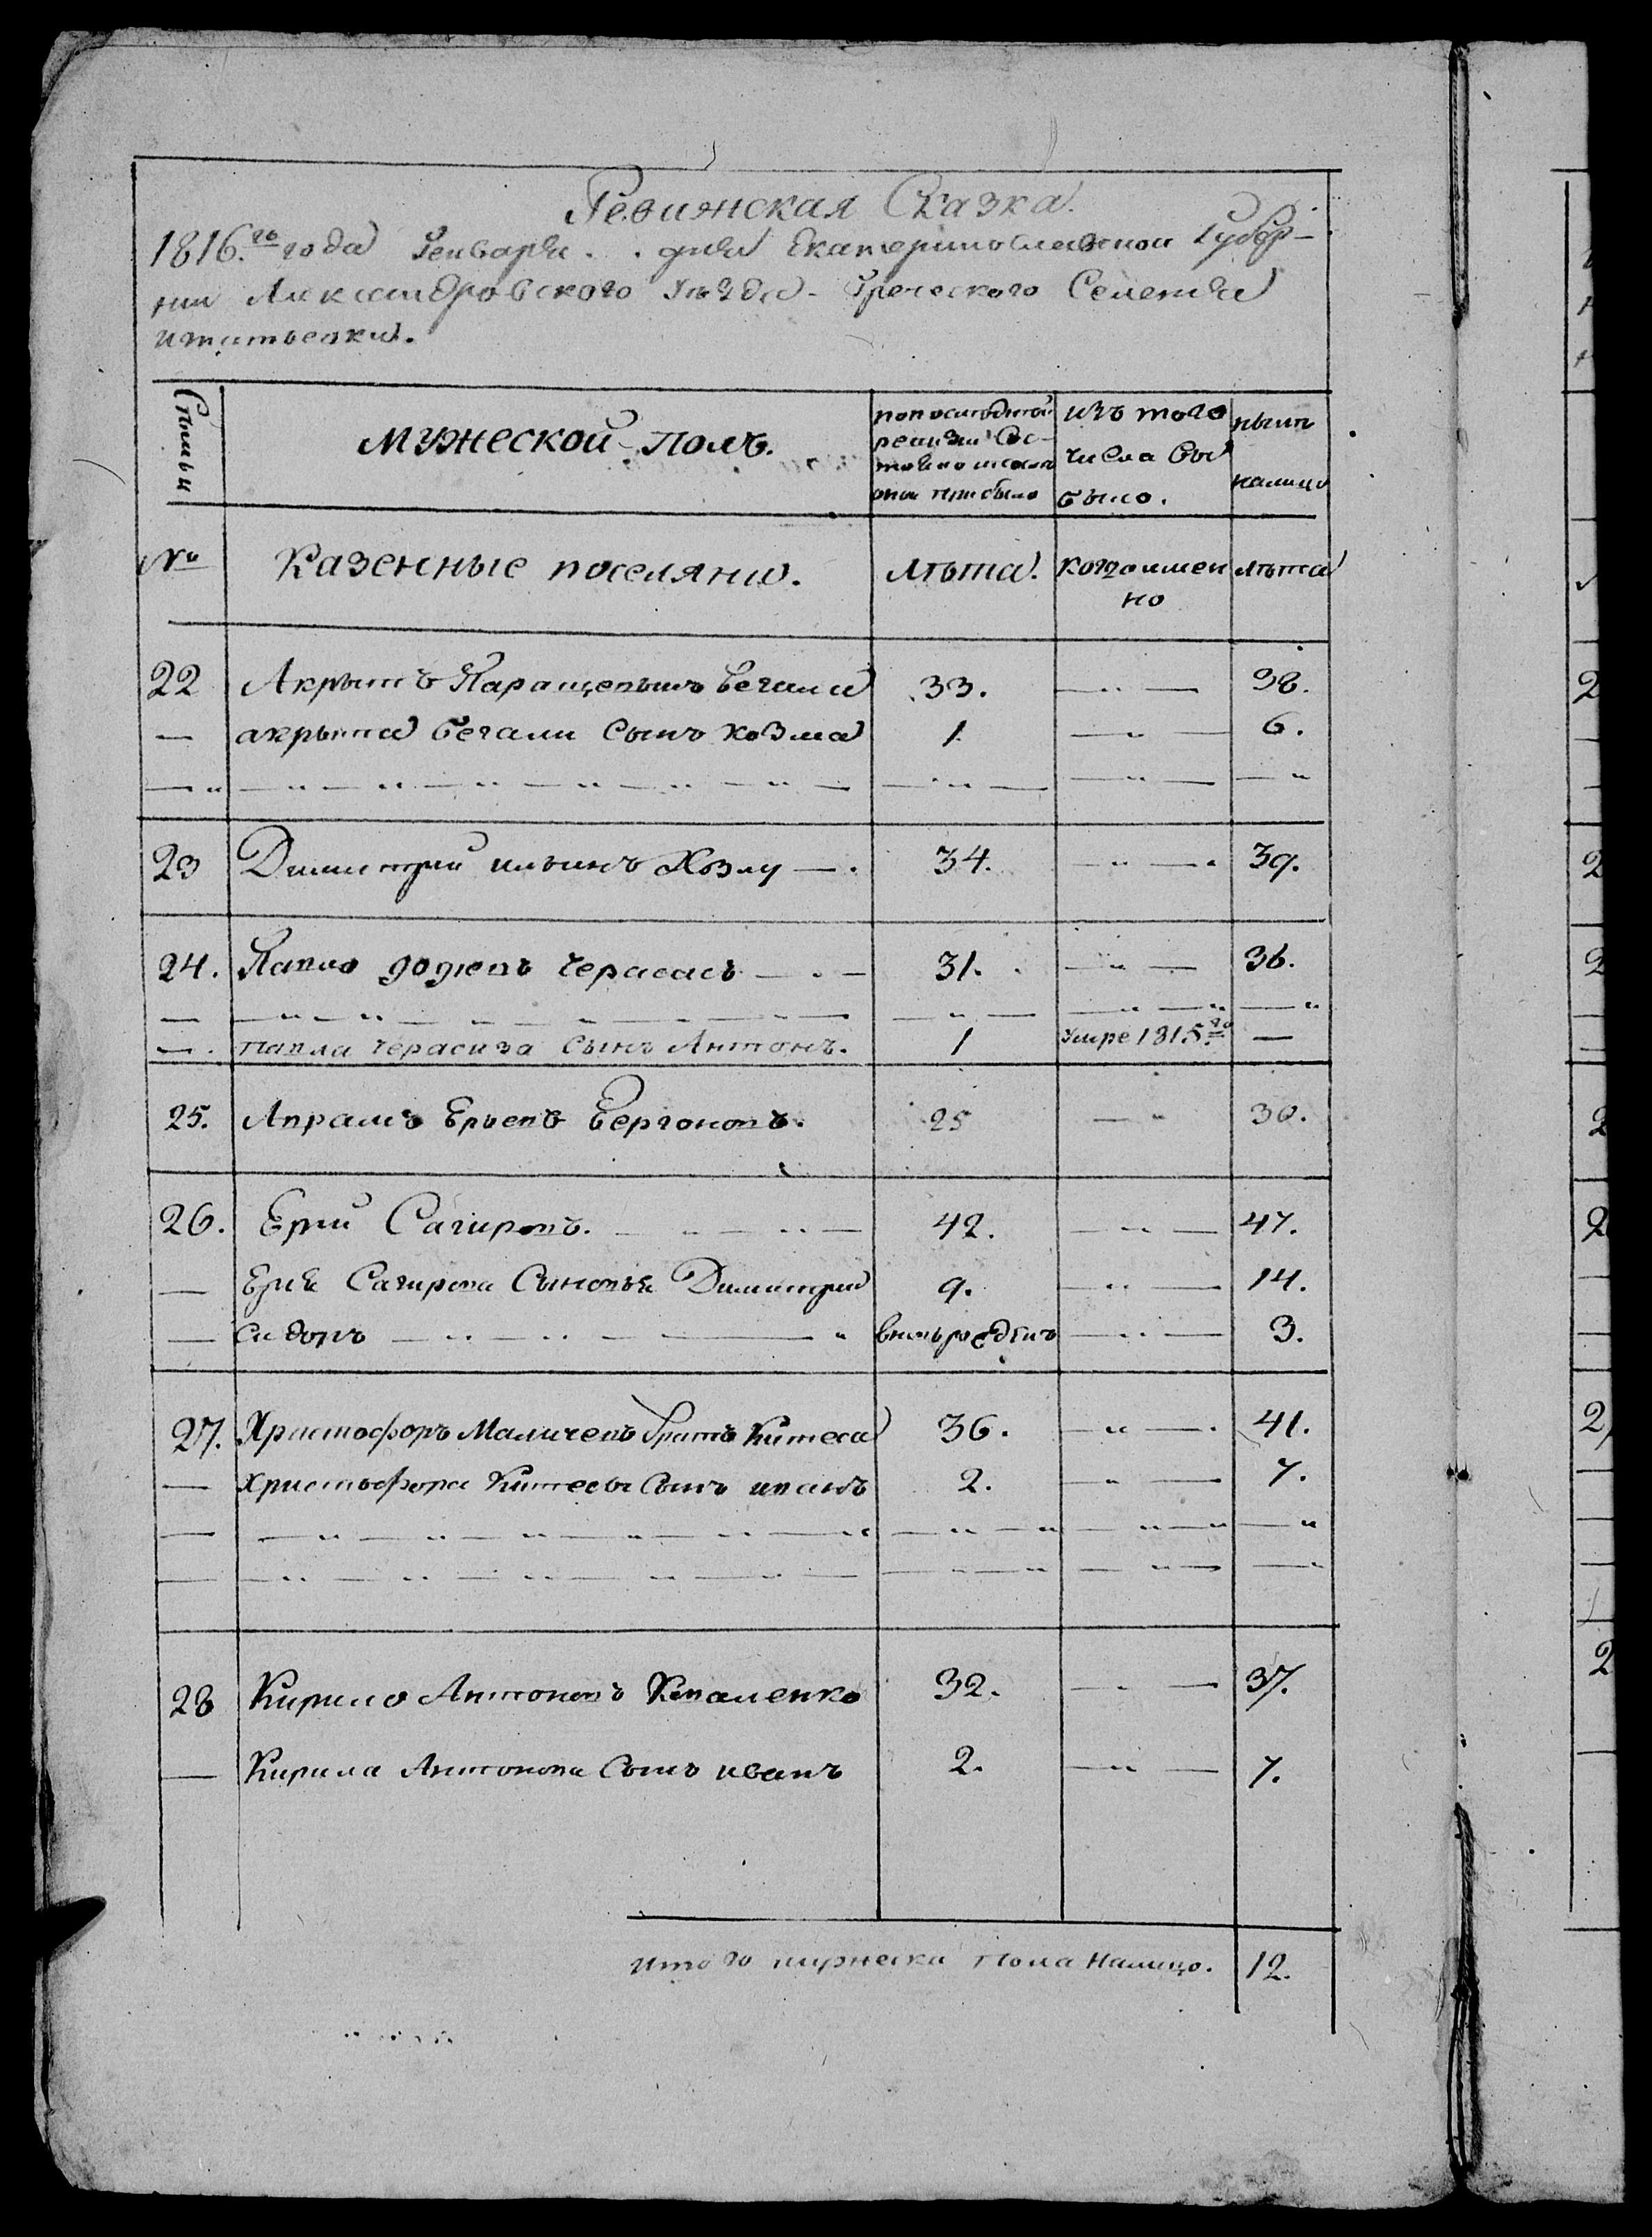 Ревижская Сказка.
1816.го года Генваря . . дня Екатеринославской Губер-
нии Александровского Уѣзда. Греческого Селения
Игнатьевки.
Статьи
Мужеской Полъ.
По последней ревизии Состояло и после онои прибыло
изъ того числа Выбыло.
нынѣ налицо
№ Казенные поселяни. Лѣта. Когда имен но лѣта
22 Акрытъ Паращевынъ Бегали 33. — „ — 38.
— акрыта бегали Сынъ Козма 1 — „ — 6.
23 Димитрий ильинъ Хозлу — . 34. — „ — . 39.
24. Павло Черасасъ — . — 31. — „ — 36.
— . павла Черасиза Сынъ Антонъ. 1 Умре 1815.го —
25. Апрамъ Ерьевъ 25 — „ 30.
26. Ерий Сагировъ. — „ — „ — 42. — „ — 47.
— Ерия Сагирова Сыновья Димитрий 9. — „ — 14.
— Сидоръ — „ — „ — „ вновьрожденъ — „ — 3.
27. Христофоръ Маличевъ братъ Китеса 36. — „ — . 41.
— Христофора Китесы Сынъ иванъ 2. — „ — 7.
28 Кирило Антоновъ Коваленко 32. — „ — 37.
— Кирила Антонова Сынъ иванъ 2. — „ — 7.
Итого мужеска Пола Налицо. 12.